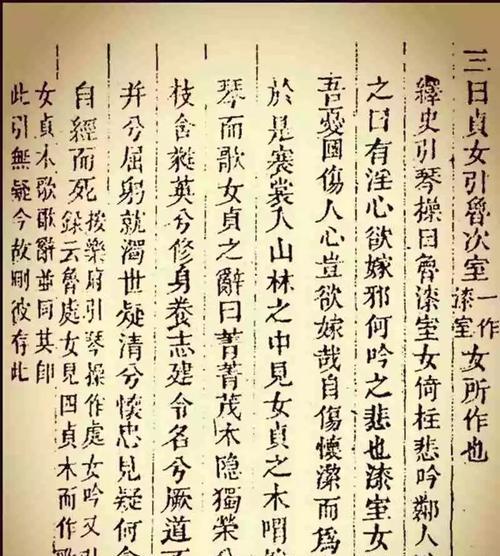 三曰貞女引魯次室一作漆室女所作也
繹史引琴操曰魯漆室女倚柱悲吟鄰人
之曰有淫心欲嫁邪何吟之悲也漆室女
吾憂國傷人心豈欲嫁哉自傷懷潔而爲
於是褰裳入山林之中見女貞之木喟
琴而歌女貞之辭曰菁菁茂木隱獨榮兮
枝含蕤英兮修身養志建令名兮厥道不
并兮屈躬就濁世疑清兮懷忠見疑何貪
自經而死按樂府引琴操作處女吟又引
錄云魯處女見四貞木而作歌
女貞木歌歌辭並同其卽
此引無疑今故刪彼存此